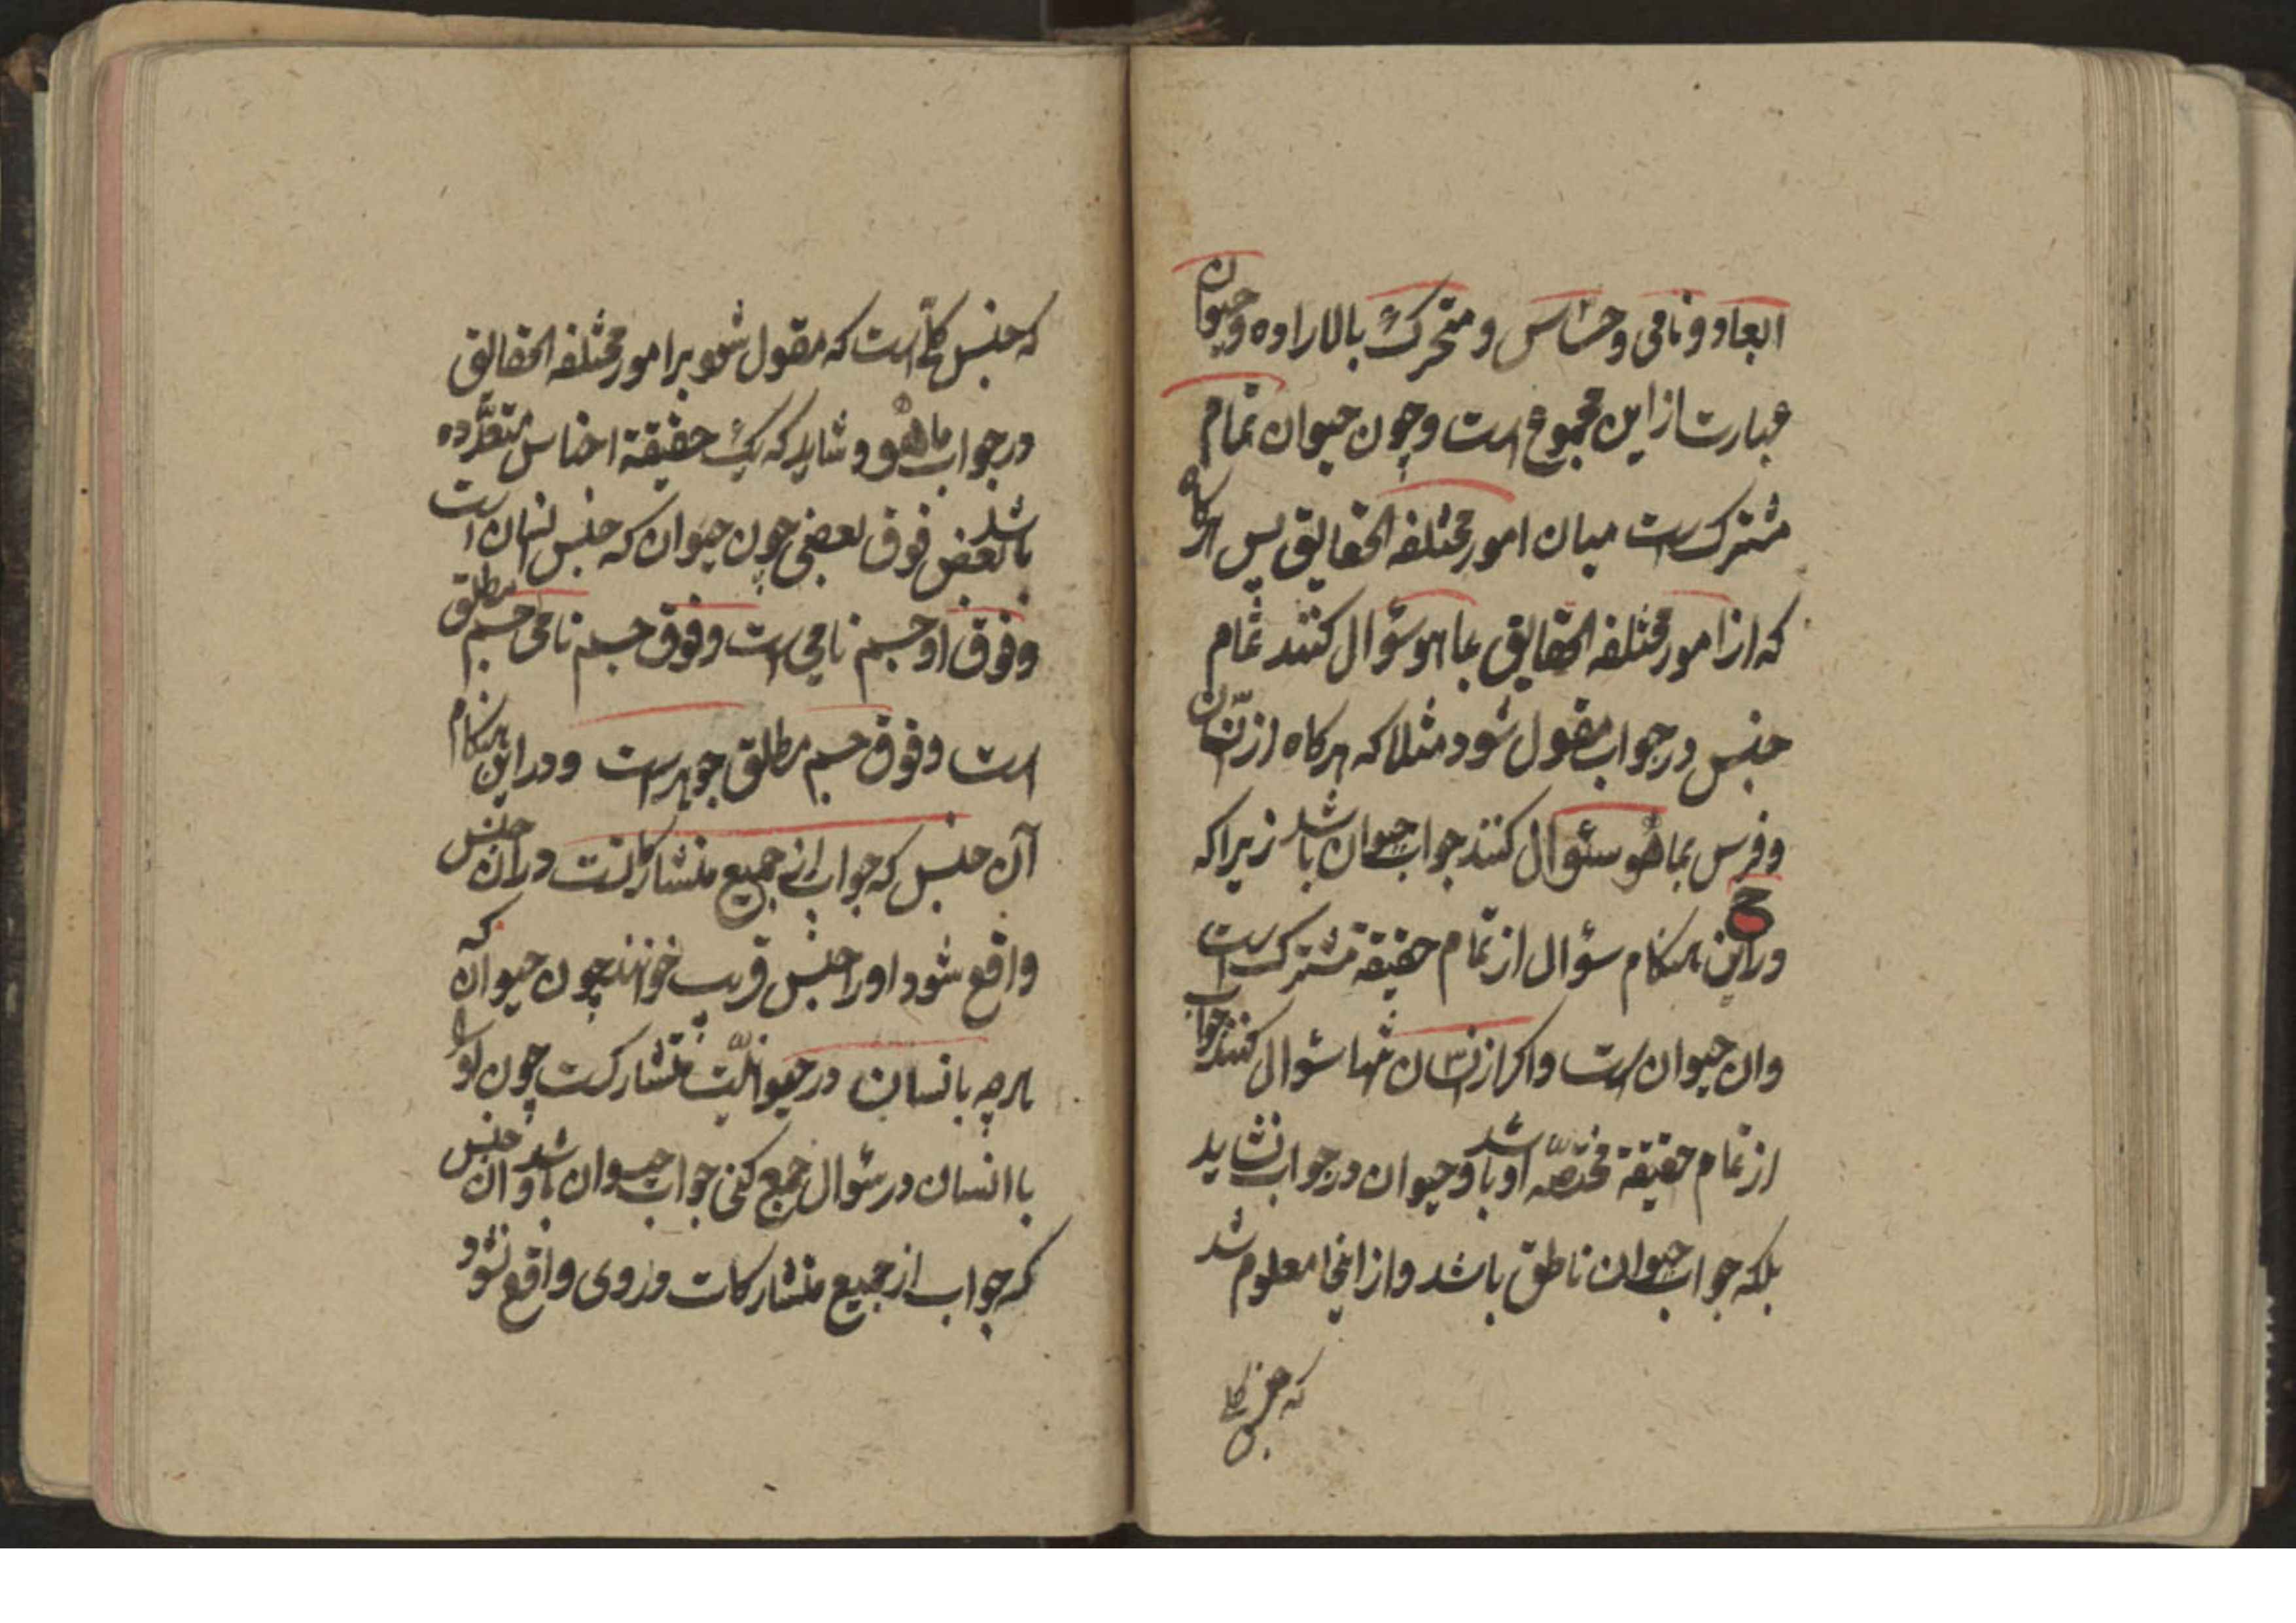 ابعاد و نامی و حساس و متحرک بالاراده و حیوان
عبارت از این مجموع است و چون حیوان تمام
مشترک است میان امور مختلفه الحقایق پس هرکاه
که از امور مختلفه الحقایق بما هو سؤال کنند تمام
جنس در جواب مقول شود مثلا که هرکاه از انسان
و فرس بما هو سئوال کنند جواب حیوان باشد زیرا که
در این هنکام سؤال از تمام حقیقة مشترک است
و ان حیوان است و اکر از انسان تنها سئوال کنند جواب
از تمام حقیقة مختصّه او باشد و حیوان در جواب نشاید
بلکه جواب حیوان ناطق باشد و از اینجا معلوم شد
که جنس کلی
که جنس کلّی است که مقول شود بر امور مختلفه الحقایق
در جواب ما هو و شاید که یک حقیقة اجناس متعدّده
باشد بعض فوق بعضی چون حیوان که جنس انسان است
و فوق او جسم نامی است و فوق جسم نامی جسم مطلق
است و فوق جسم مطلق جوهر است و در این هنکام
آن جنس که جواب از جمیع متشارکات در ان جنس
واقع شود او را جنس قریب خوانند چون حیوان که
هرچه با انسان در حیوانیّت متشارکست چون او را
با انسان در سئوال جمع کنی جواب حیوان باشد و ان جنس
که جواب از جمیع متشارکات در وی واقع نشود